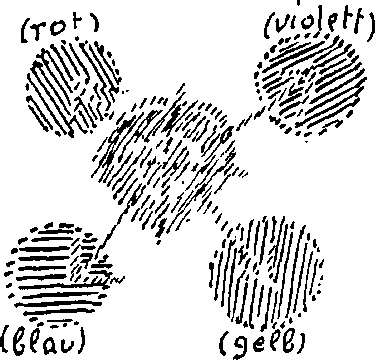 (rot)
(violett)
(blau)
(gelb)